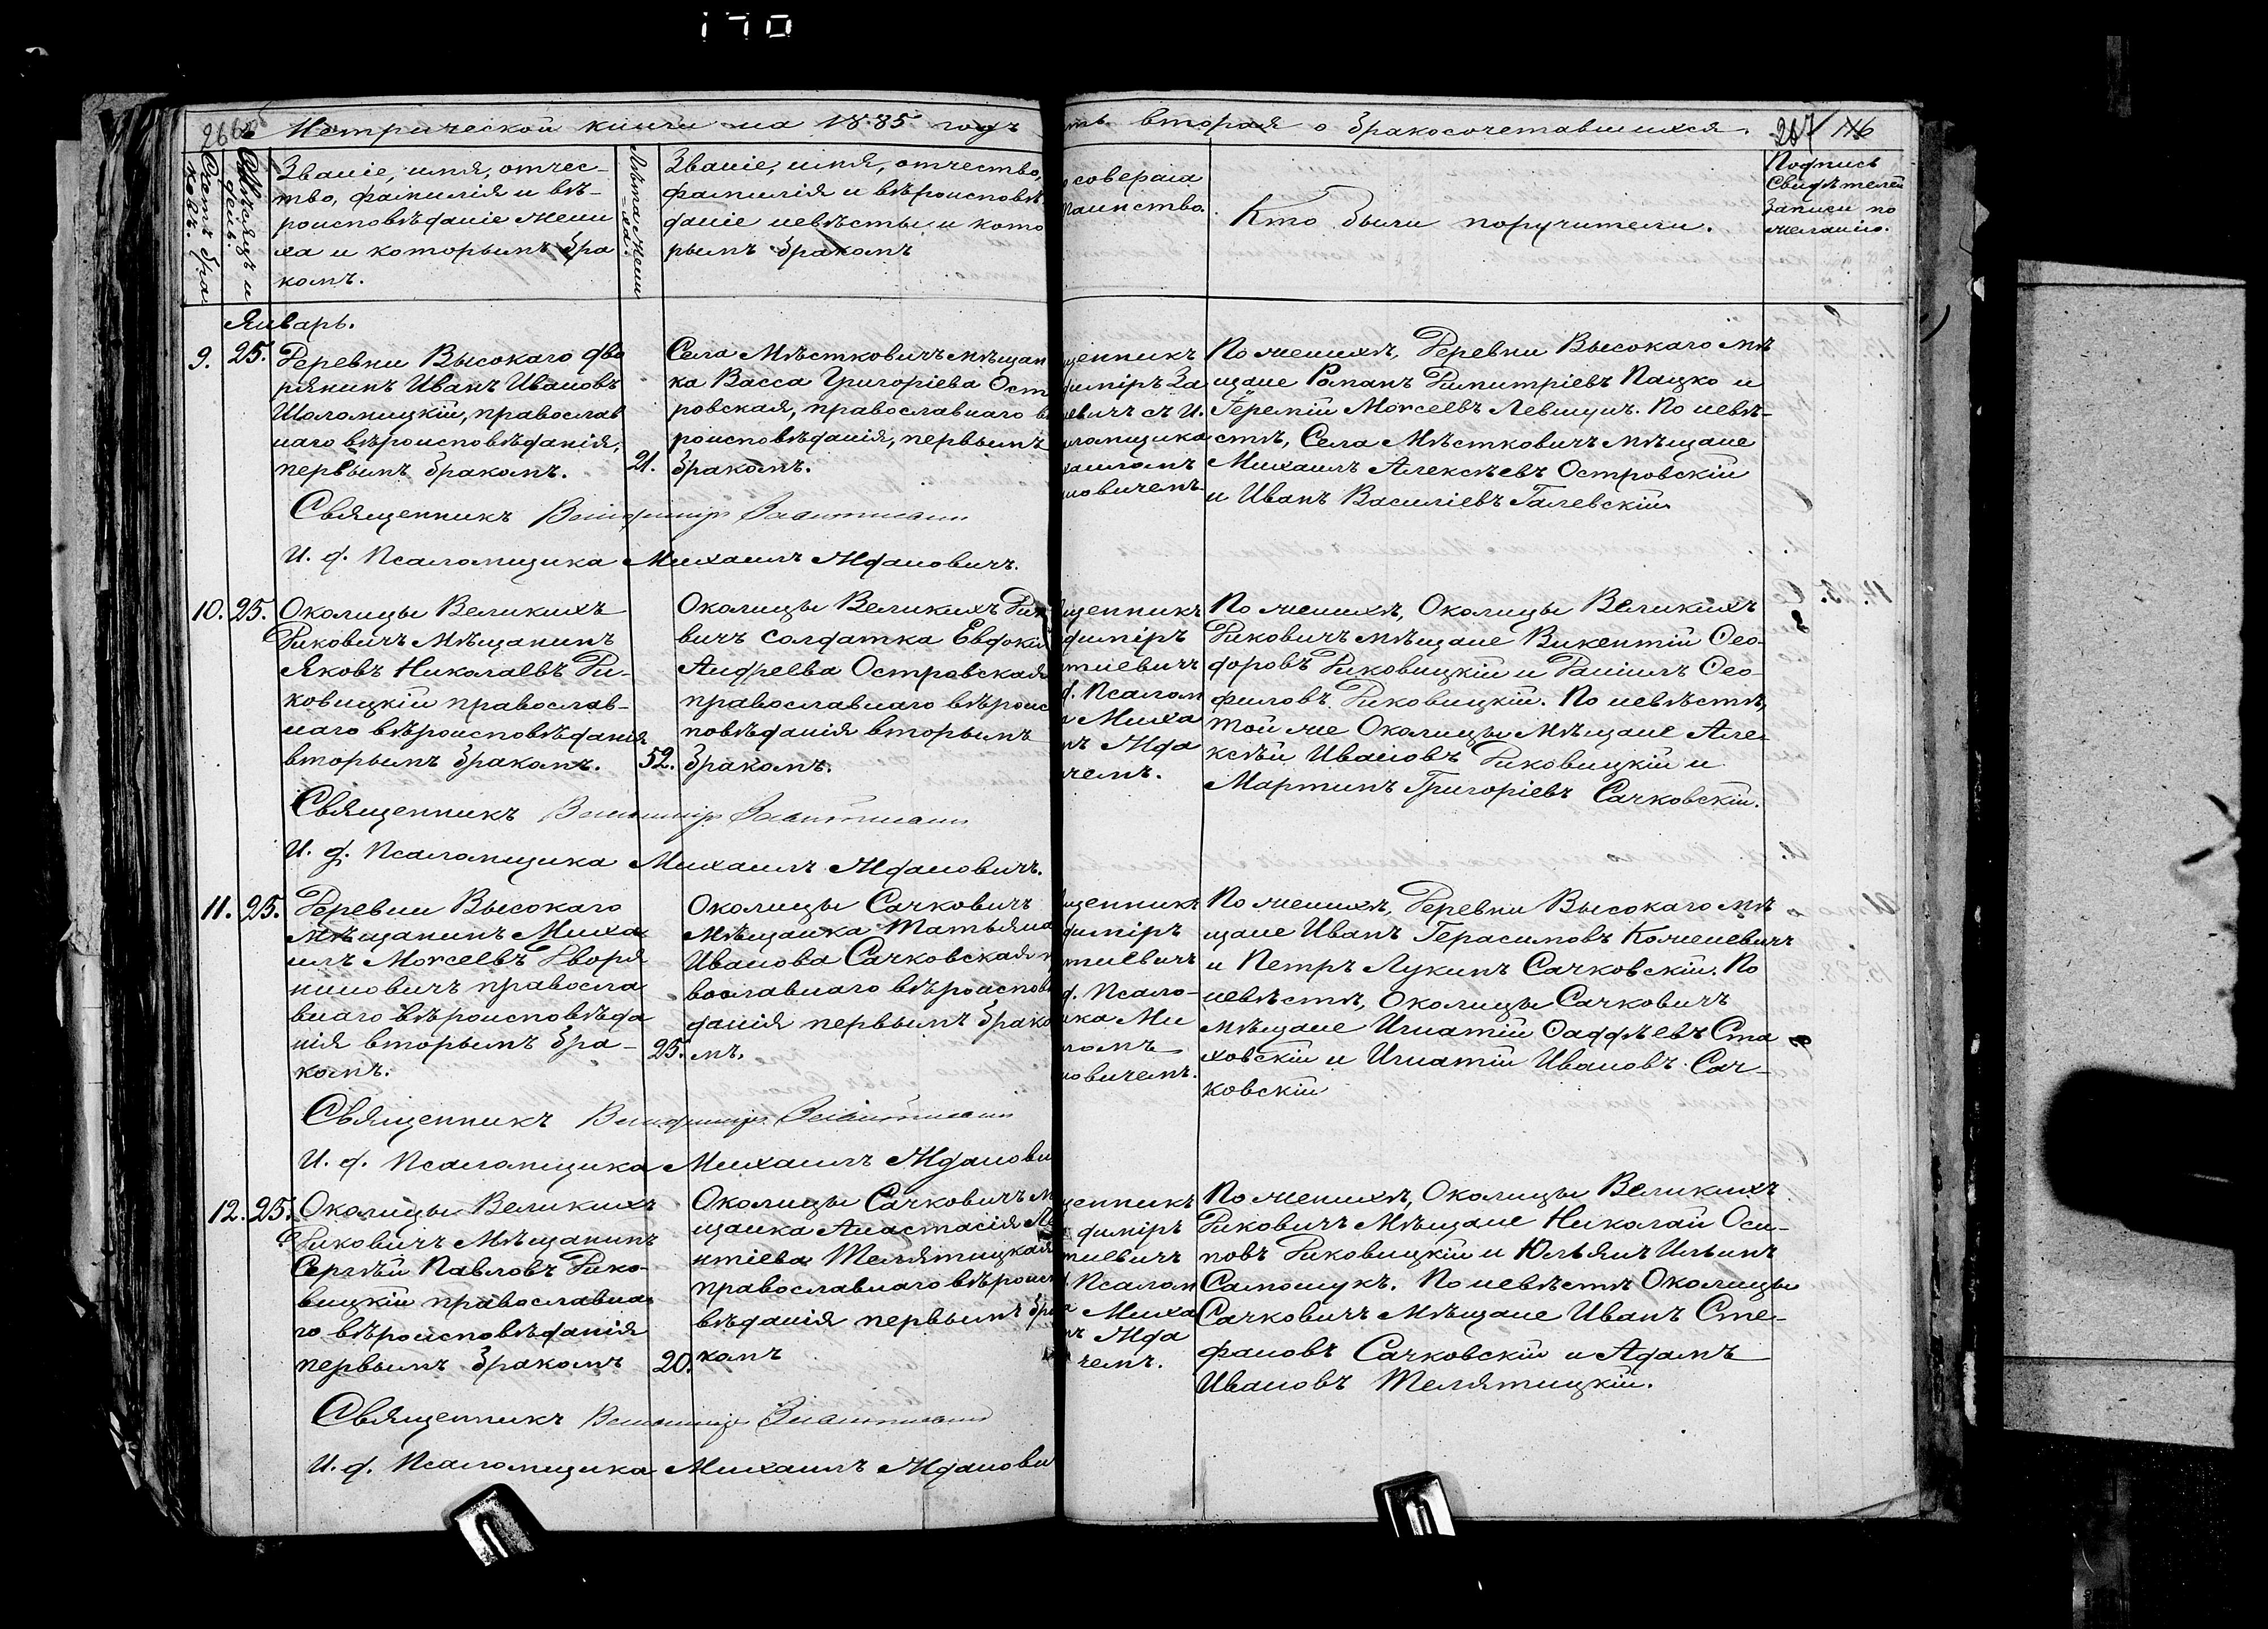 170
Метрической книги на 1885 годъ
ть вторая о бракосочетавшихся.
267 146
Счетъ бра
ковъ.
Мѣсяцъ и
день.
Званіе, имя, отчес-
тво, фамилія и вѣ-
роисповѣданіе жени
ха и которымъ бра
комъ.
Лѣта жени
ха.
Званіе, имя, отчество,
фамилія и вѣроисповѣ
даніе невѣсты и кото
рымъ бракомъ
совершалъ
таинство.
Кто были поручители.
Подпись
Свидѣтелей
записи по
желанію.
Январь.
9. 25. Деревни Высокаго дво
рянинъ Иванъ Ивановъ
Шоломицкій, православ
наго вѣроисповѣданія,
первымъ бракомъ.
21.
Села Мѣстковичъ мѣщан
ка Васса Григоріева Ост
ровская, православнаго в
роисповѣданія, первымъ
бракомъ.
щенникъ
димiръ За
евичъ съ И.
аломщика
хаиломъ
новичемъ
По женихѣ, Деревни Высокаго мѣ
щане Романъ Димитріевъ Пацко и
Іеремій Моѵсеевъ Левщунъ. По невѣ-
стѣ, Села Мѣстковичъ мѣщане
Михаилъ Алексѣевъ Островскій
и Иванъ Василіевъ Галевскій
Священникъ Владиміръ
И. д. Псаломщика Михаилъ Ждановичъ.
10. 25. Околицы Великихъ
Диковичъ мѣщанинъ
Яковъ Николаевъ Ди-
ковицкій православ-
наго вѣроисповѣданія
вторымъ бракомъ.
52.
Околицы Великихъ Дик
вичъ солдатка Евдокія
Андреева Островская
православнаго вѣроис
повѣданія вторымъ
бракомъ.
щенникъ
диміръ
тиевичъ
д. Псалом
а Миха
лъ Жда
чемъ.
По женихѣ, Околицы Великихъ
Диковичъ мѣщане Викентій Ѳео-
доровъ Диковицкій и Даніилъ Ѳео-
филовъ Диковицкій. По невѣстѣ,
той же Околицы мѣщане Але-
ксѣй Ивановъ Диковицкій и
Мартинъ Григоріевъ Сачковскій.
Священникъ Владиміръ
И. д. Псаломщика Михаилъ Ждановичъ.
11. 25. Деревни Высокаго
мѣщанинъ Миха
илъ Моѵсеевъ Дворя
ниновичъ правосла
внаго вѣроисповѣда
нія вторымъ бра-
комъ.
25.
Околицы Сачковичъ
мѣщанка Татьяна
Иванова Сачковская п
вославнаго вѣроисповѣ
данія первымъ брако
мъ.
щенникъ
диміръ
тиевичъ
д. Псало-
ика Ми
ломъ
новичемъ.
По женихѣ, Деревни Высокаго мѣ
щане Иванъ Герасимовъ Коженевичъ
и Петръ Лукинъ Сачковскій. По
невѣстѣ, Околицы Сачковичъ
мѣщане Игнатій Ѳаддѣевъ Ста
ховскій и Игнатій Ивановъ Сач-
ковскій
Священникъ Владиміръ
И. д. Псаломщика Михаилъ Жданови
12. 25. Околицы Великихъ
Диковичъ мѣщанинъ
Сергѣй Павловъ Дико-
вицкій православна
го вѣроисповѣданія
первымъ бракомъ
20.
Околицы Сачковичъ м
щанка Анастасія Ле
нтіева Телятицкая
православнаго вѣроис
вѣданія первымъ бра
комъ
щенникъ
диміръ
тиевичъ
Псалом
а Миха
лъ Жда
чемъ.
По женихѣ, Околицы Великихъ
Диковичъ мѣщане Николай Оси-
повъ Диковицкій и Юльянъ Ильинъ
Самошукъ. По невѣстѣ Околицы
Сачковичъ мѣщане Иванъ Сте-
фановъ Сачковскій и Адамъ
Ивановъ Телятицкій.
Священникъ Владиміръ
И. д. Псаломщика Михаилъ Жданови